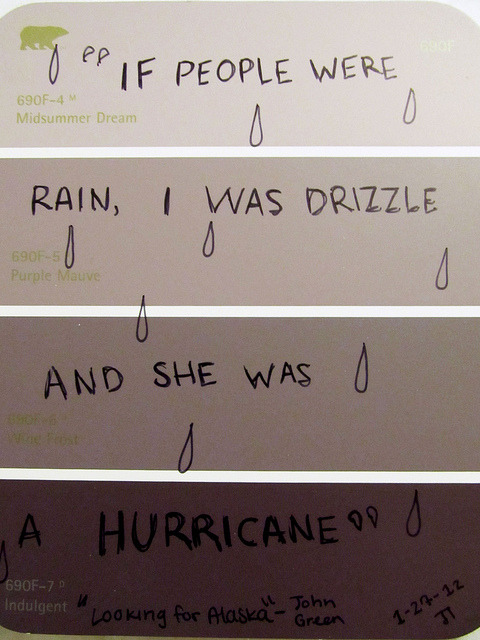 690F
"IF PEOPLE WERE
690F-4 M
Midsummer Dream
RAIN, I WAS DRIZZLE
690F-5
Purple Mauve
AND SHE WAS
690F-6
Wine Frost
A HURRICANE"
690F-7 D
Indulgent
"Looking for Alaska" - John Green
1-27-12
JJ